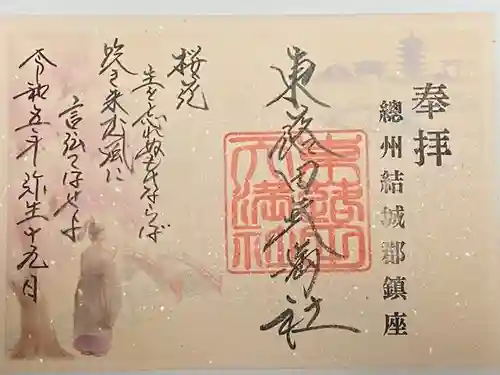 奉拝
總州結城郡鎮座
東蕗田天満社
東蕗田
天満社
桜花
主を忘れぬものならば
吹き来む風に
言伝てはせよ
令和五年弥生十九日